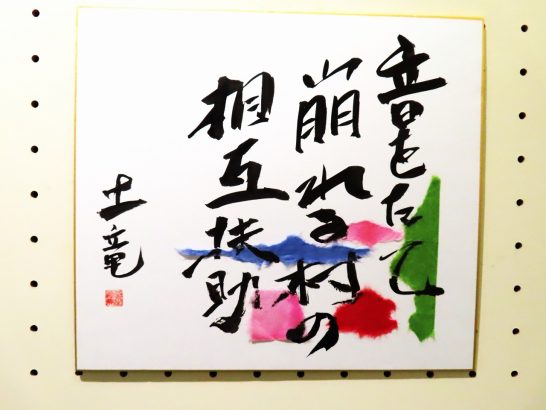 音をたて
崩れる村の
相互扶助
土竜